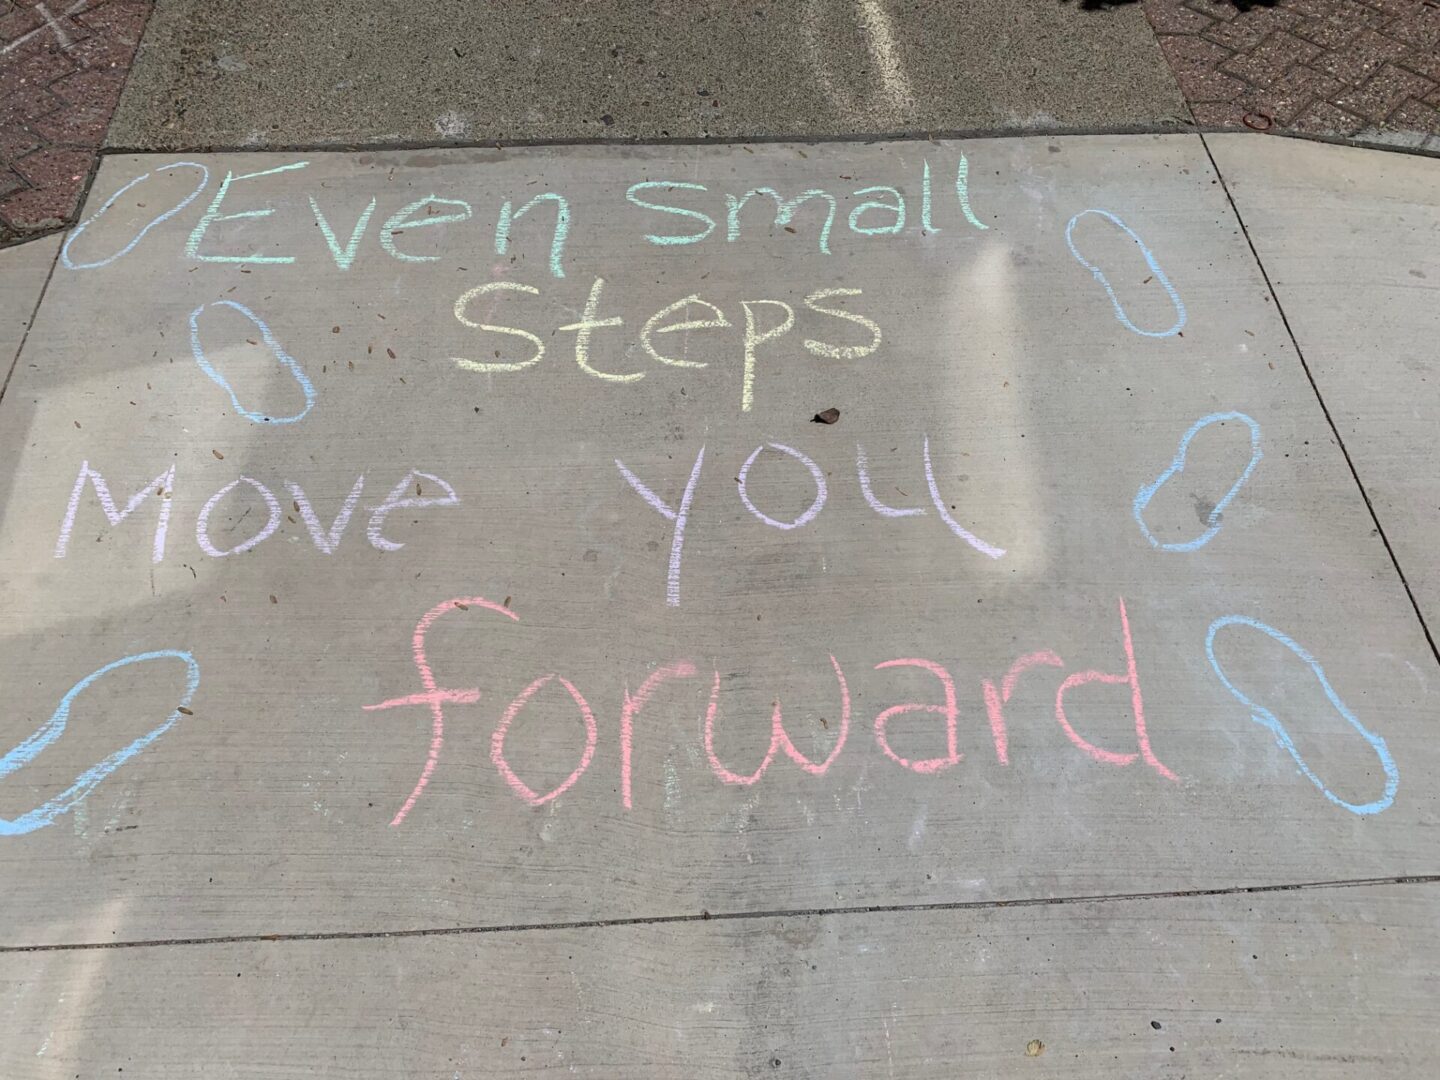 Even Small
Steps
Move you
forward